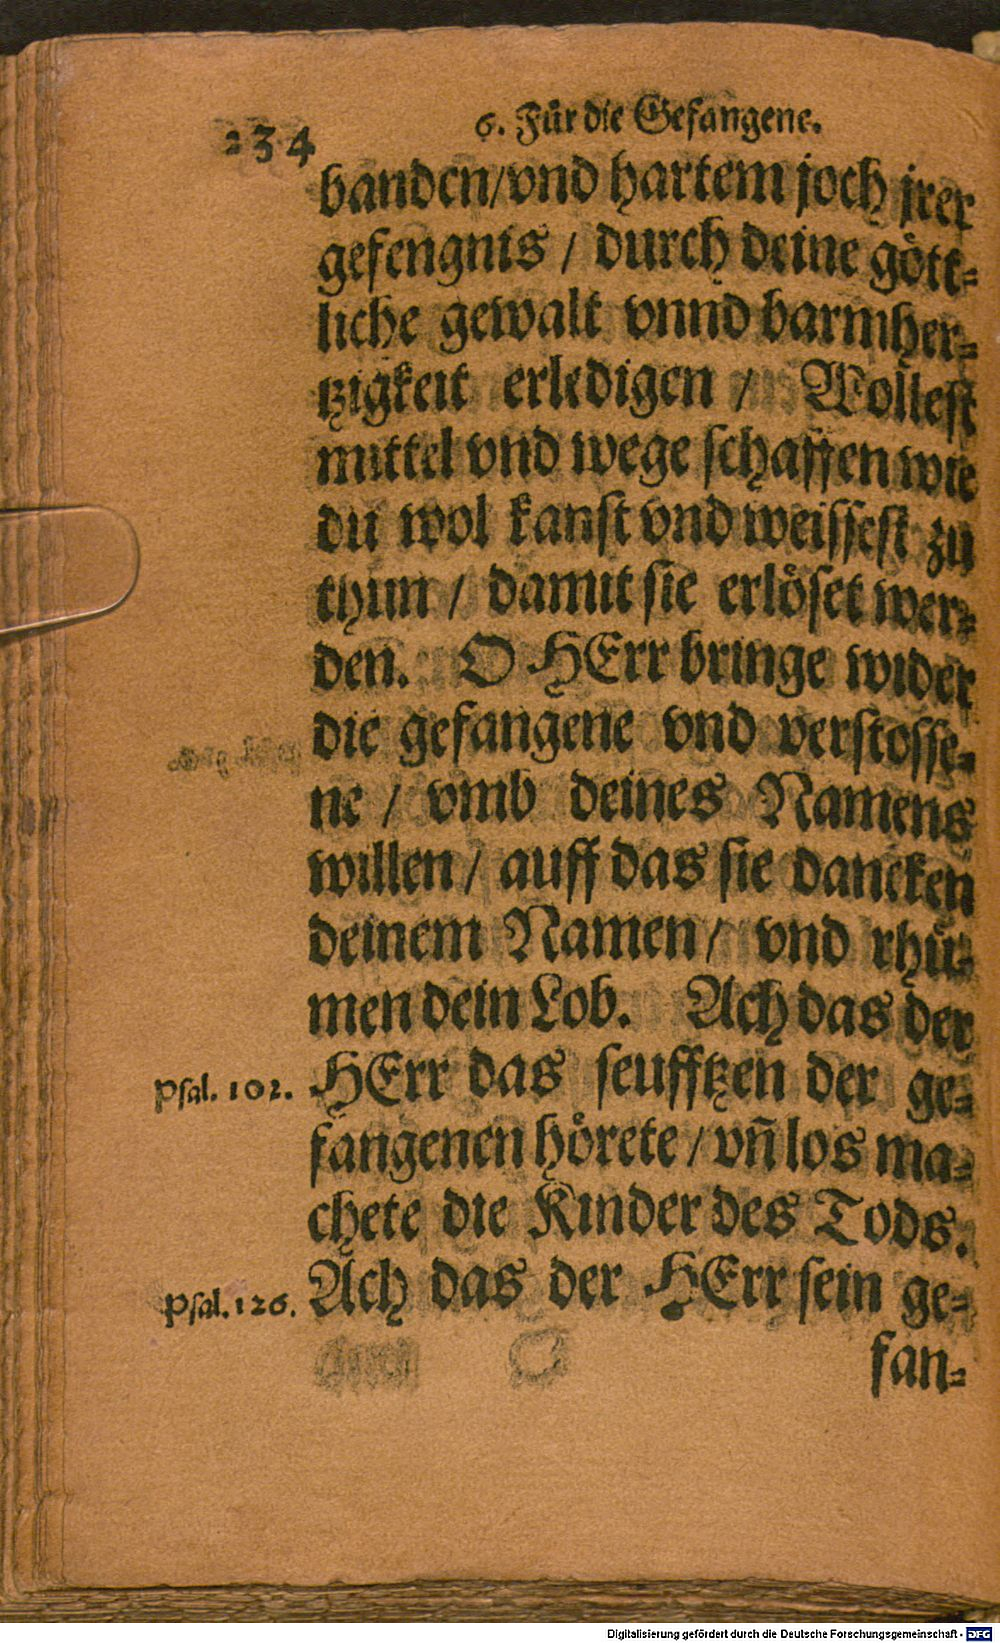 234
6. Für die Gefangene.
banden/vnd hartem joch jrer
gefengnis / durch deine gött-
liche gewalt vnnd barmher-
tzigkeit erledigen / Wollest
mittel vnd wege schaffen wie
du wol kanst vnd weissest zu
thun / damit sie erlöset wer-
den. O HErr bringe wider
die gefangene vnd verstosse-
ne / vmb deines Namens
willen / auff das sie dancken
deinem Namen / vnd rhü-
men dein Lob. Ach das der
Psal. 102. HErr das seufftzen der ge-
fangenen hörete / vn̄ los ma-
chete die Kinder des Tods.
Psal. 126. Ach das der HErr sein ge-
fan-
Digitalisierung gefördert durch die Deutsche Forschungsgemeinschaft - DFG